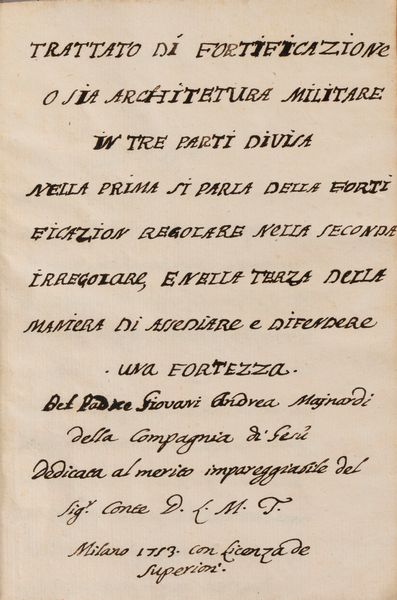 TRATTATO DI FORTIFICAZIONE
O SIA ARCHITETURA MILITARE
IN TRE PARTI DIVISA
NELLA PRIMA SI PARLA DELLA FORTI
FICAZION REGOLARE NELLA SECONDA
IRREGOLARE, E NELLA TERZA DELLA
MANIERA DI ASSEDIARE E DIFENDERE
· UNA FORTEZZA ·
Del Padre Giovani Andrea Majnardi
della Compagnia di Gesù
Dedicata al merito impareggiabile del
Sig.r Conte D. L. M. T.
Milano 1753. con Licenza de
Superiori.